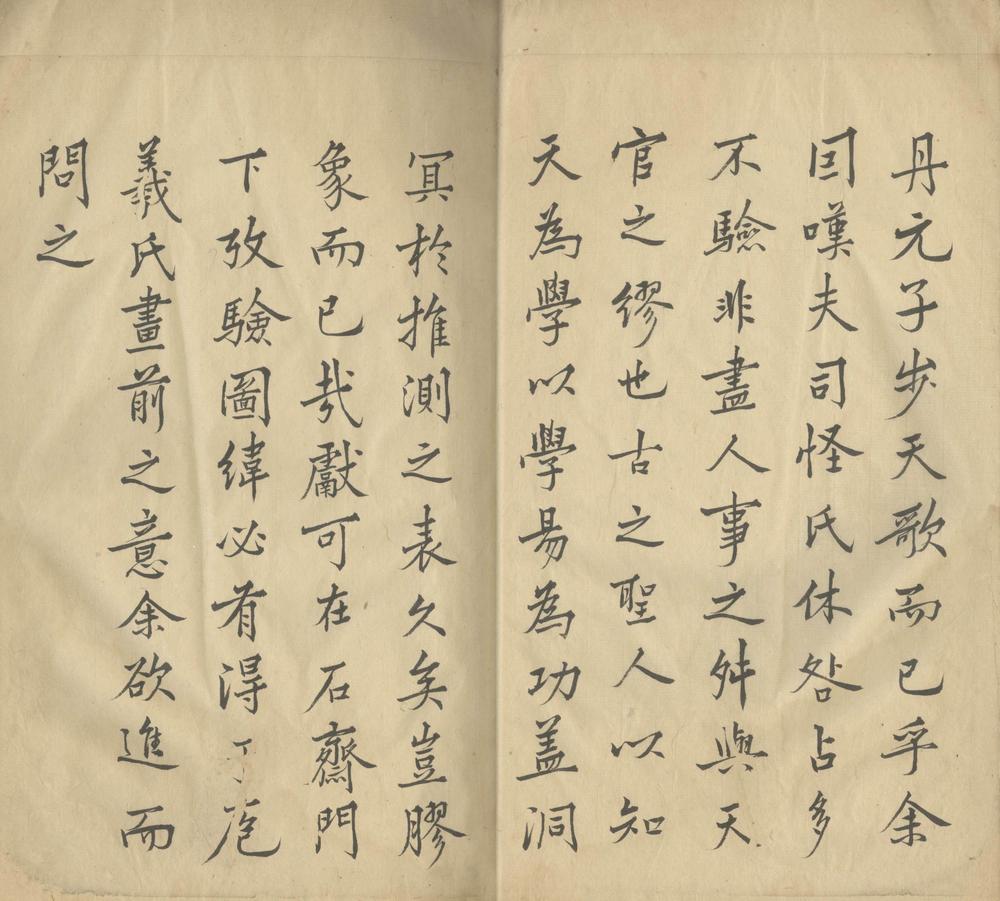 丹元子步天歌而已乎余
因嘆夫司怪氏休咎占多
不驗非盡人事之舛與天
官之繆也古之聖人以知
天為學以學易為功盖洞
冥於推測之表久矣豈膠
象而已哉獻可在石齋門
下攷驗圖緯必有得於庖
羲氏畫前之意余欲進而
問之